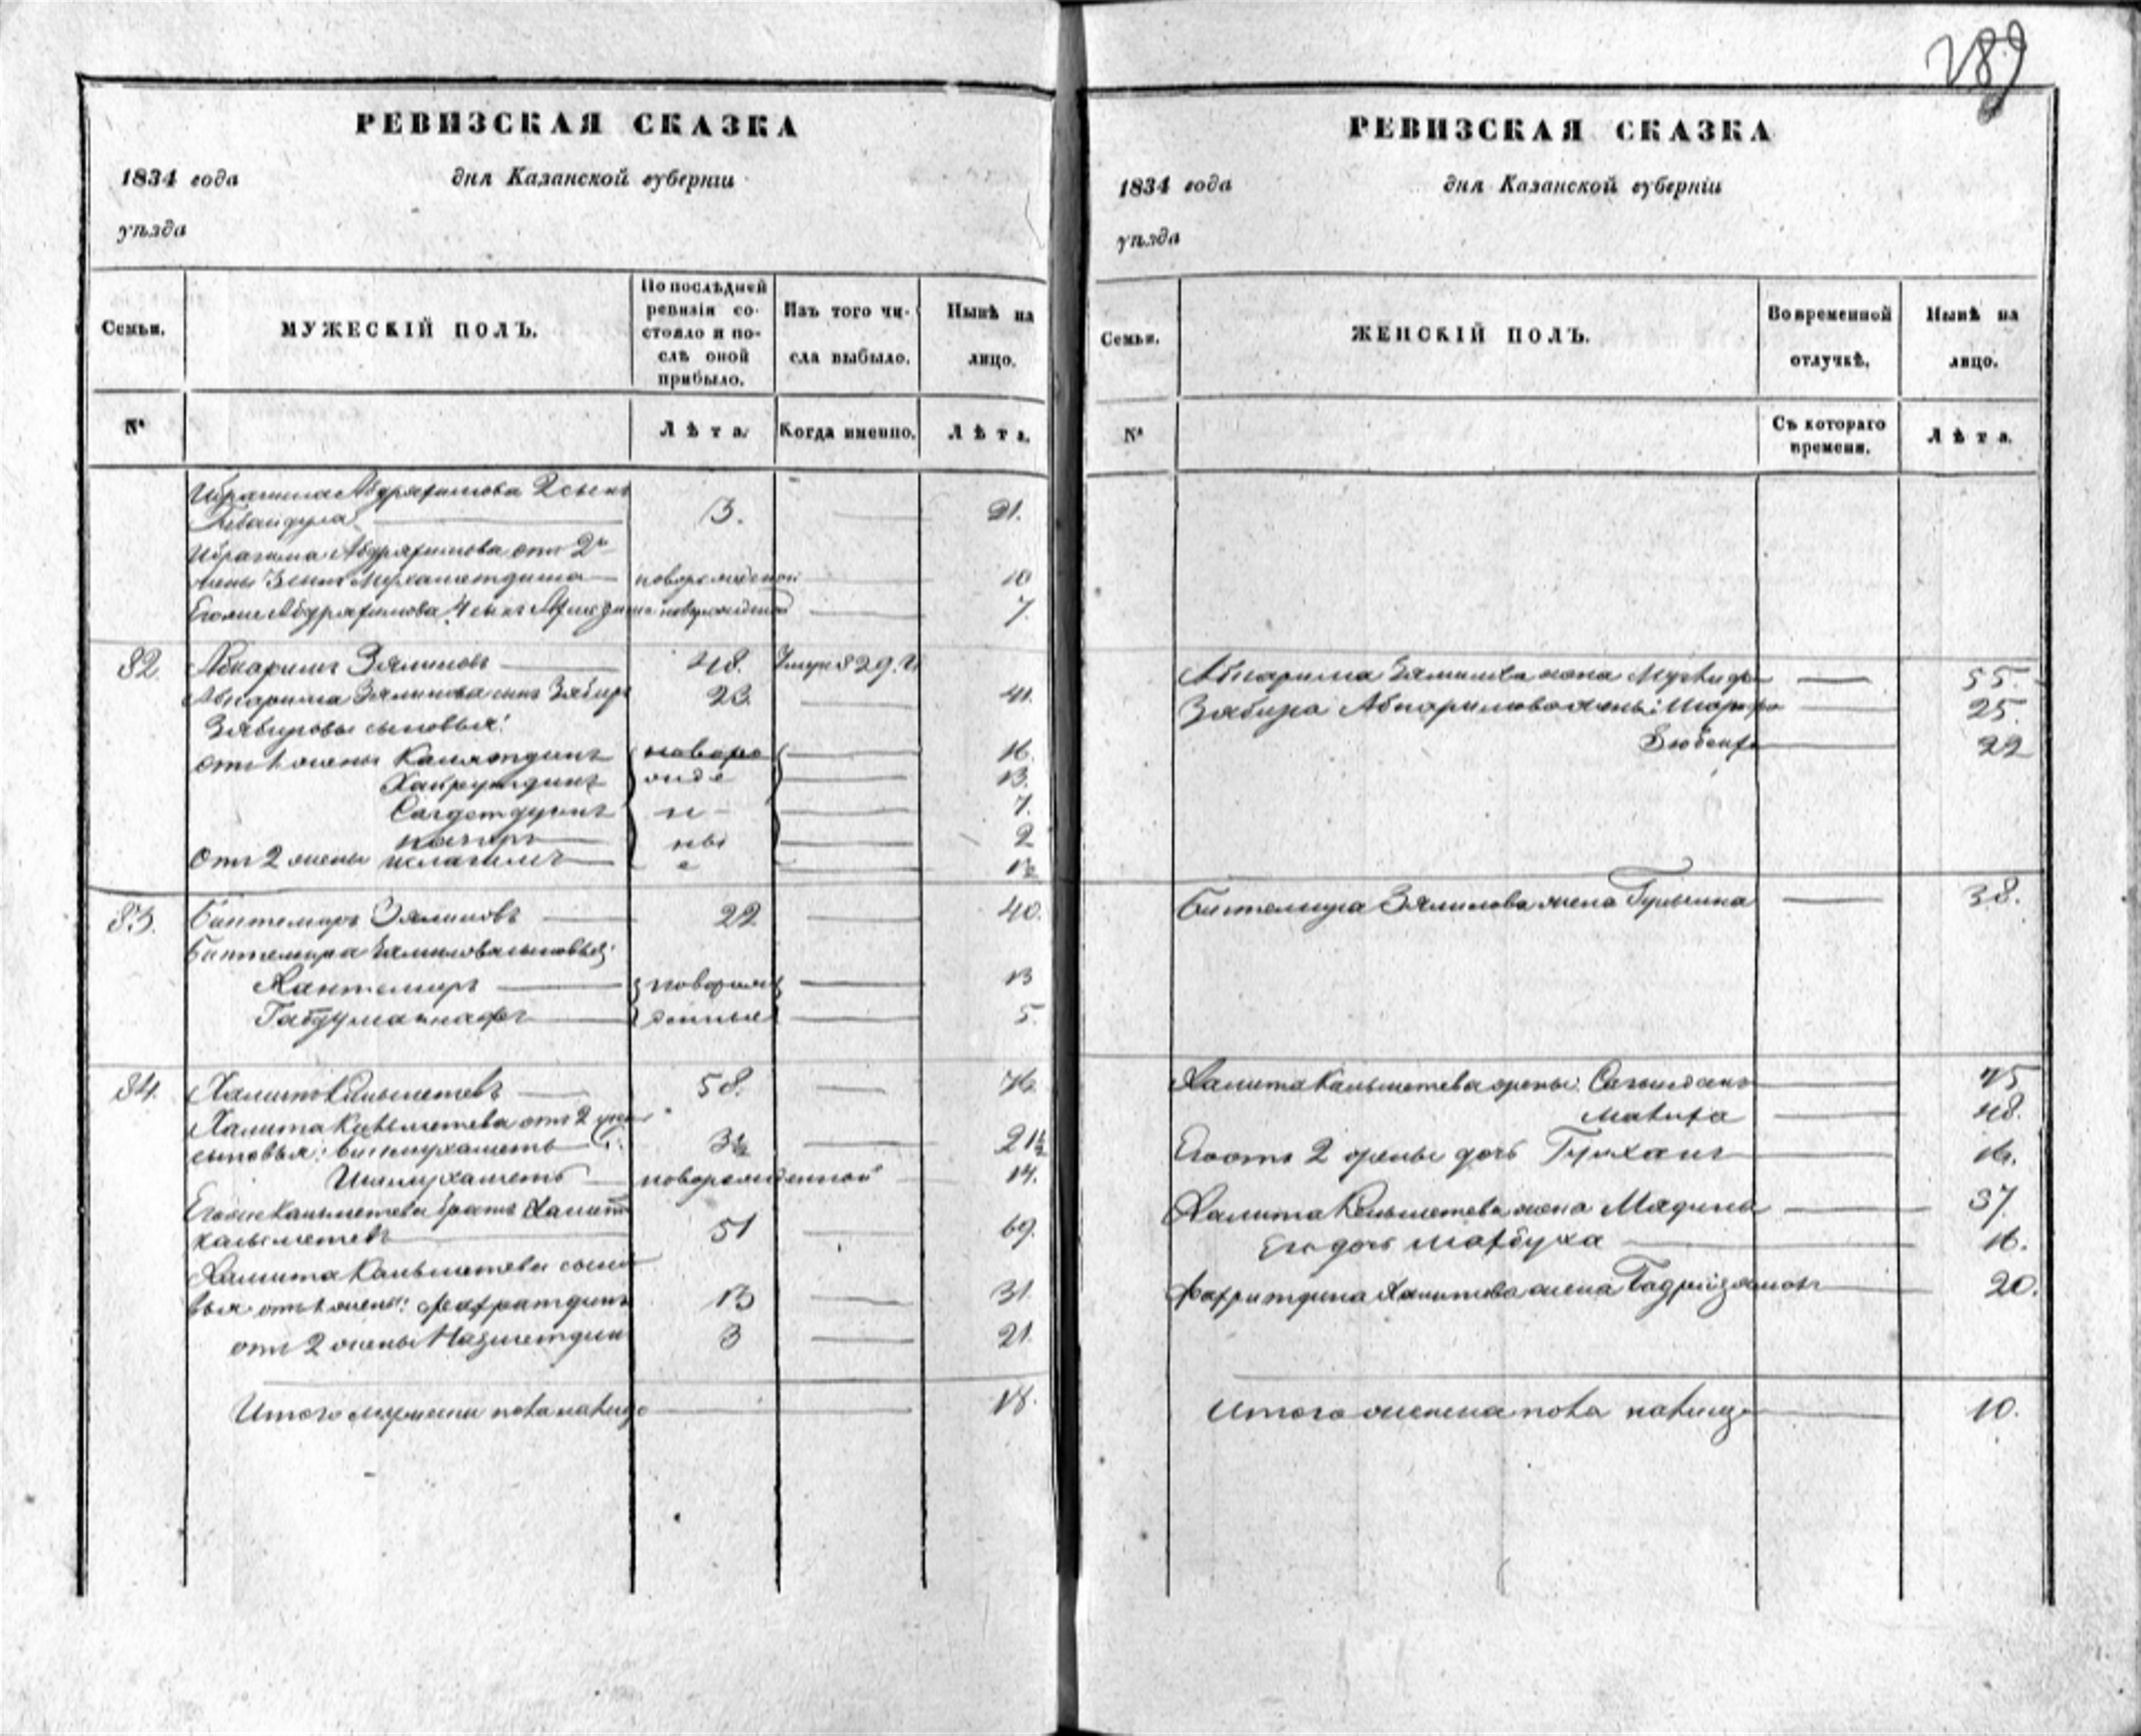 289
РЕВИЗСКАЯ СКАЗКА
1834 года дня Казанской губернии
уѣзда
Семьи.
МУЖЕСКІЙ ПОЛЪ.
По послѣдней ревизіи состояло и послѣ оной прибыло.
Изъ того числа выбыло.
Нынѣ на лицо.
№
Лѣта.
Когда именно.
Лѣта.
Ибрагима Абдряхимова 2 сынъ
3. 21.
Ибрагима Абдряхимова отъ 2й
жены 3 сынъ Мухаметдина новорожденой 10
Абдряхимова 4 сынъ новорожденой 7.
82. Абкаримъ Зялиловъ 48. 829. г.
Абкарима Зялилова сынъ Зябиръ 23. 41.
Зябировы сыновья:
отъ 1 жены Камятдинъ новоро 16.
Хайрутдинъ жде 13.
Сагдетдинъ н 7.
ны 2
Отъ 2 жены е 1½
83. Биктемиръ Зялиловъ 22 40.
Биктемира Зялилова сыновья:
Хантемиръ новорож 13
Габдулманафъ денные 5.
84. Халитъ Калметевъ 58. 76
Халита Калметева отъ 2 жены
сыновья: Бикмухаметъ 3½ 21½
Ишмухаметъ новорожденной 14.
Калметева братъ Хамитъ
Калметевъ 51 69.
Хамита Калметева сыно
вья отъ 1 жены: Фахратдинъ 13 31
отъ 2 жены Назметдин 3 21.
Итого мужеска пола налицо 18.
РЕВИЗСКАЯ СКАЗКА
1834 года дня Казанской губерніи
уѣзда
Семьи.
ЖЕНСКІЙ ПОЛЪ.
Во временной отлучкѣ.
Нынѣ на лицо.
№
Съ котораго времени.
Лѣта.
Абкарима Зялилова жена 55.
Зябира Абкаримова жены: 25.
22
Биктемира Зялилова жена 38.
Халита Калметева жены: 75
48.
Его отъ 2 жены дочь Гулханъ 16.
Хамита Калметева жена Мадина 37.
Его дочь Махбуха 16.
Фахритдина Хамитова жена 20.
Итого женска пола налицо 10.